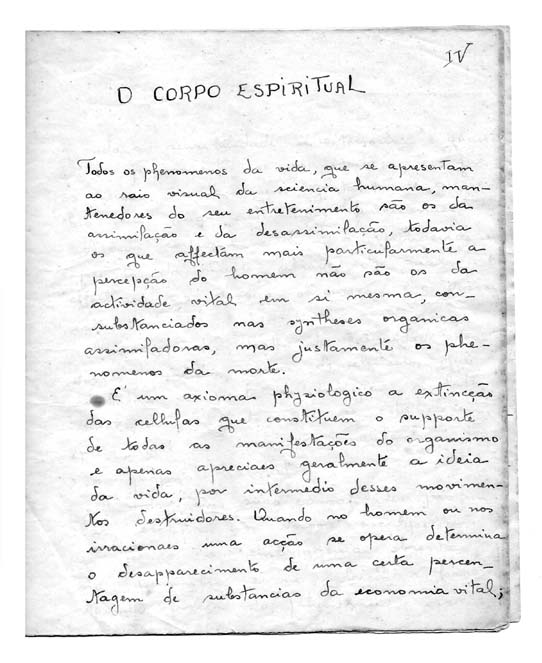 IV
O CORPO ESPIRITUAL
Todos os phenomenos da vida, que se apresentam
ao raio visual da sciencia humana, man-
tenedores do seu entretenimento são os da
assimilação e da desassimilação, todavia
os que affectam mais particularmente a
percepção do homem não são os da
actividade vital em si mesma, con-
substanciados nas syntheses organicas
assimiladoras, mas justamente os phe-
nomenos da morte.
E' um axioma physiologico a extincção
das cellulas que constituem o supporte
de todas as manifestações do organismo
e apenas apreciaes geralmente a ideia
da vida, por intermedio desses movimen-
tos destruidores. Quando no homem ou nos
irracionaes uma acção se opera determina
o desapparecimento de uma certa percen-
tagem de substancias da economia vital;